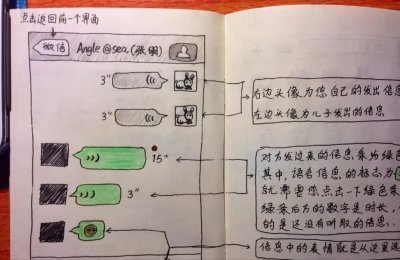 点击返回前一个界面
微信
Angle@sea(张明)
3"
3"
右边头像为您自己的发出信息
左边头像为儿子发出的信息
15"
3"
对方发过来的信息条为绿色
其中，语音信息的标志为
就需要您点击一下绿色条
绿条后方的数字是时长，
的是还没有听取的信息，
信息中的表情就是从这里选